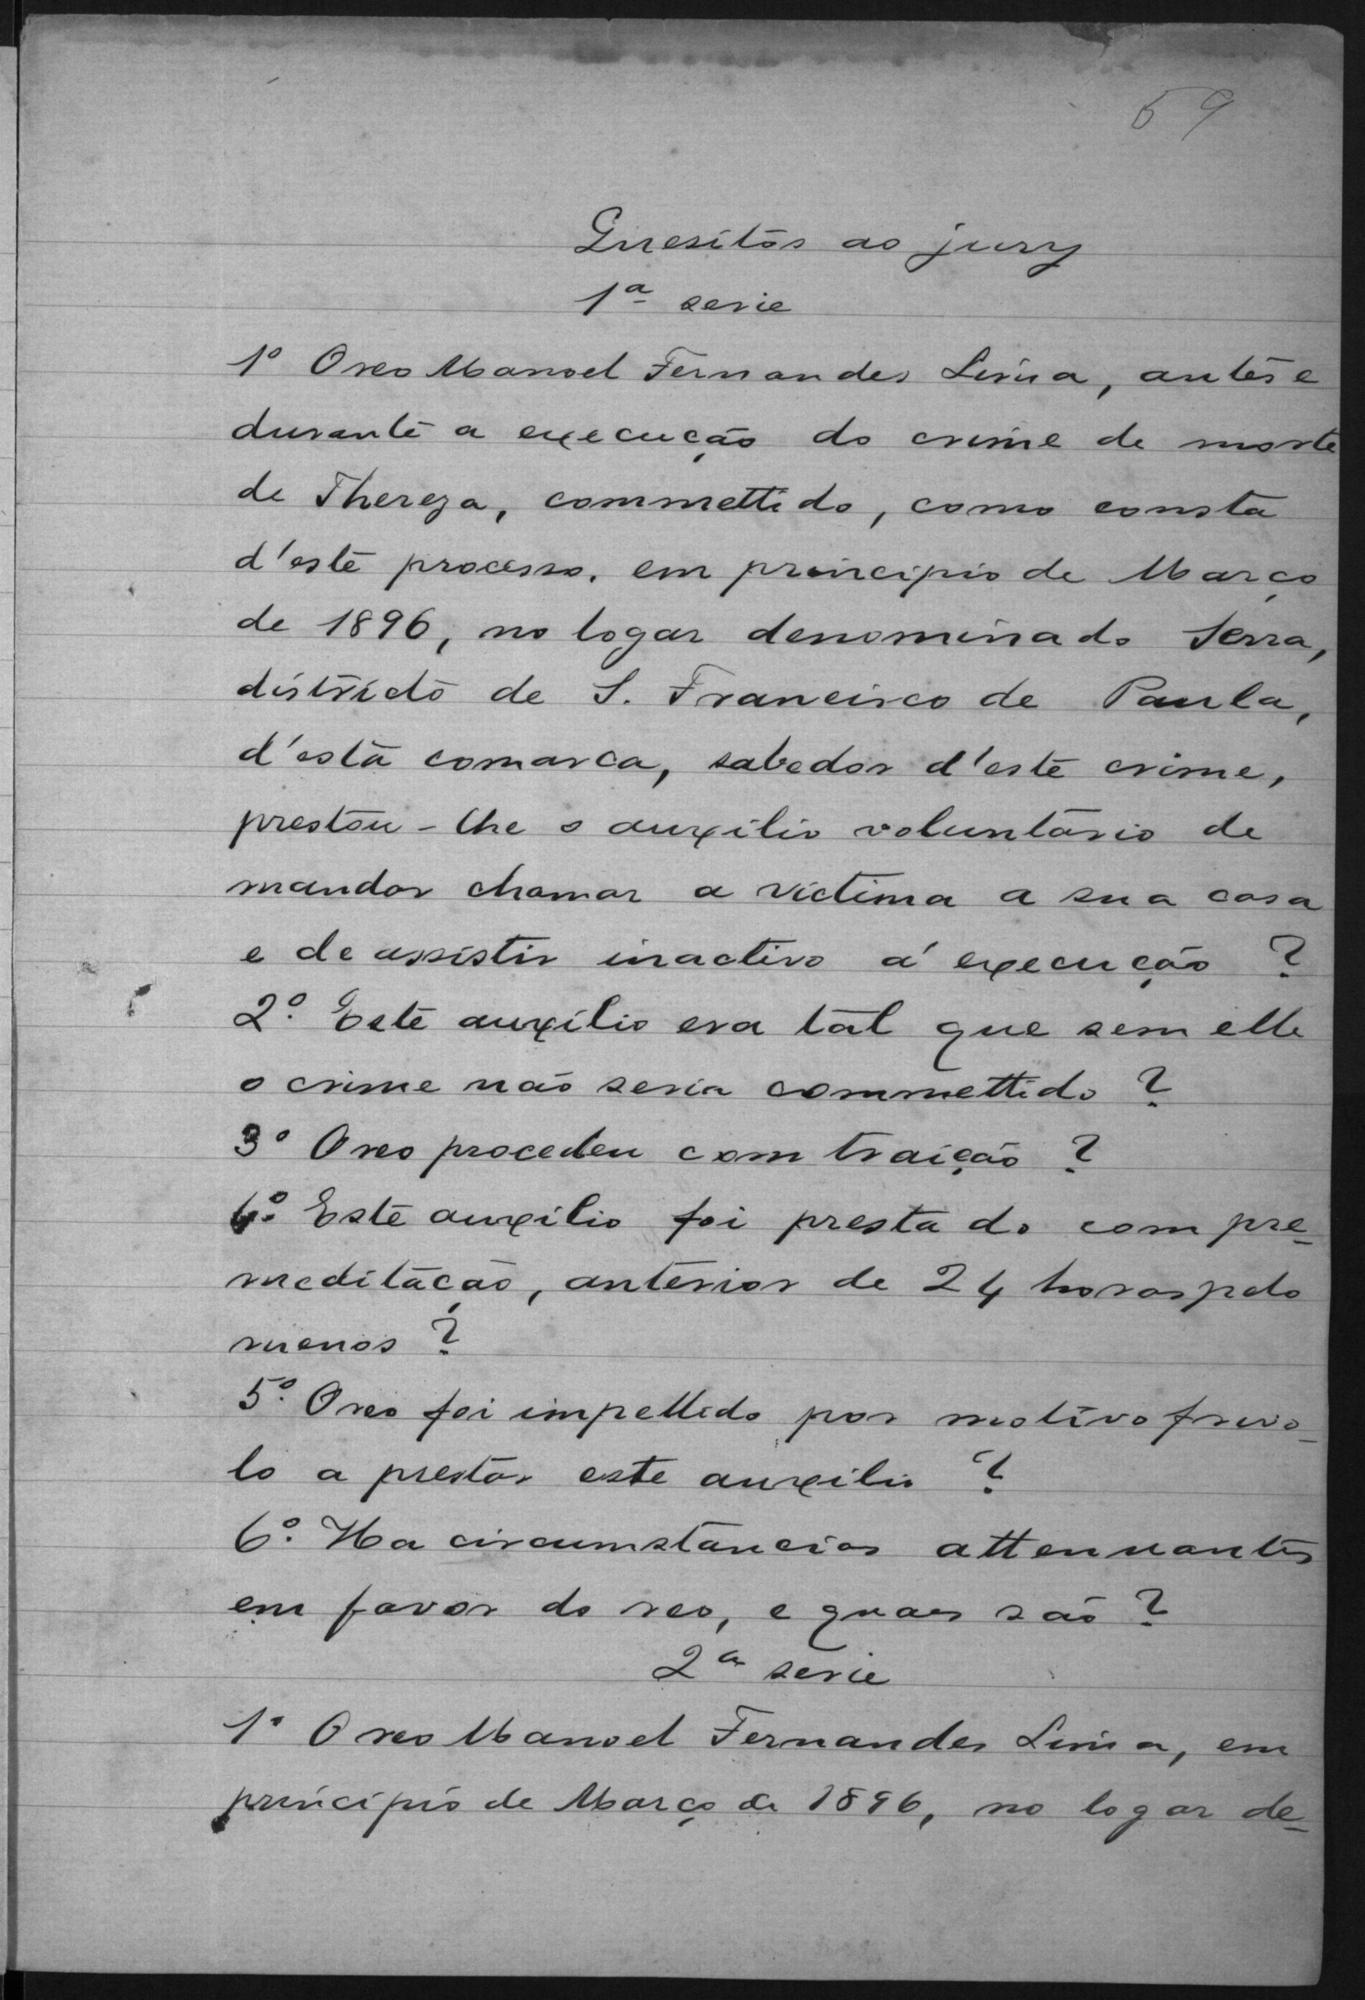 59
Quesitos ao jury
1ª serie
1º O reo Manoel Fernandes Lima, antes e
durante a execução do crime de morte
de Thereza, commettido, como consta
d'este processo, em principio de Março
de 1896, no logar denominado Serra,
districto de S. Francisco de Paula,
d'esta comarca, sabedor d'este crime,
prestou-lhe o auxilio voluntario de
mandar chamar a victima a sua casa
e de assistir inactivo á execução?
2º. Este auxilio era tal que sem elle
o crime não seria commettido?
3º O reo procedeu com traição?
4º. Este auxilio foi prestado com pre-
meditação, anterior de 24 horas pelo
menos?
5º. O reo foi impellido por motivo frivo-
lo a prestar este auxilio?
6º. Ha circumstancias attenuantes
em favor do reo, e quaes são?
2ª serie
1º O reo Manoel Fernandes Lima, em
principio de Março de 1896, no logar de-